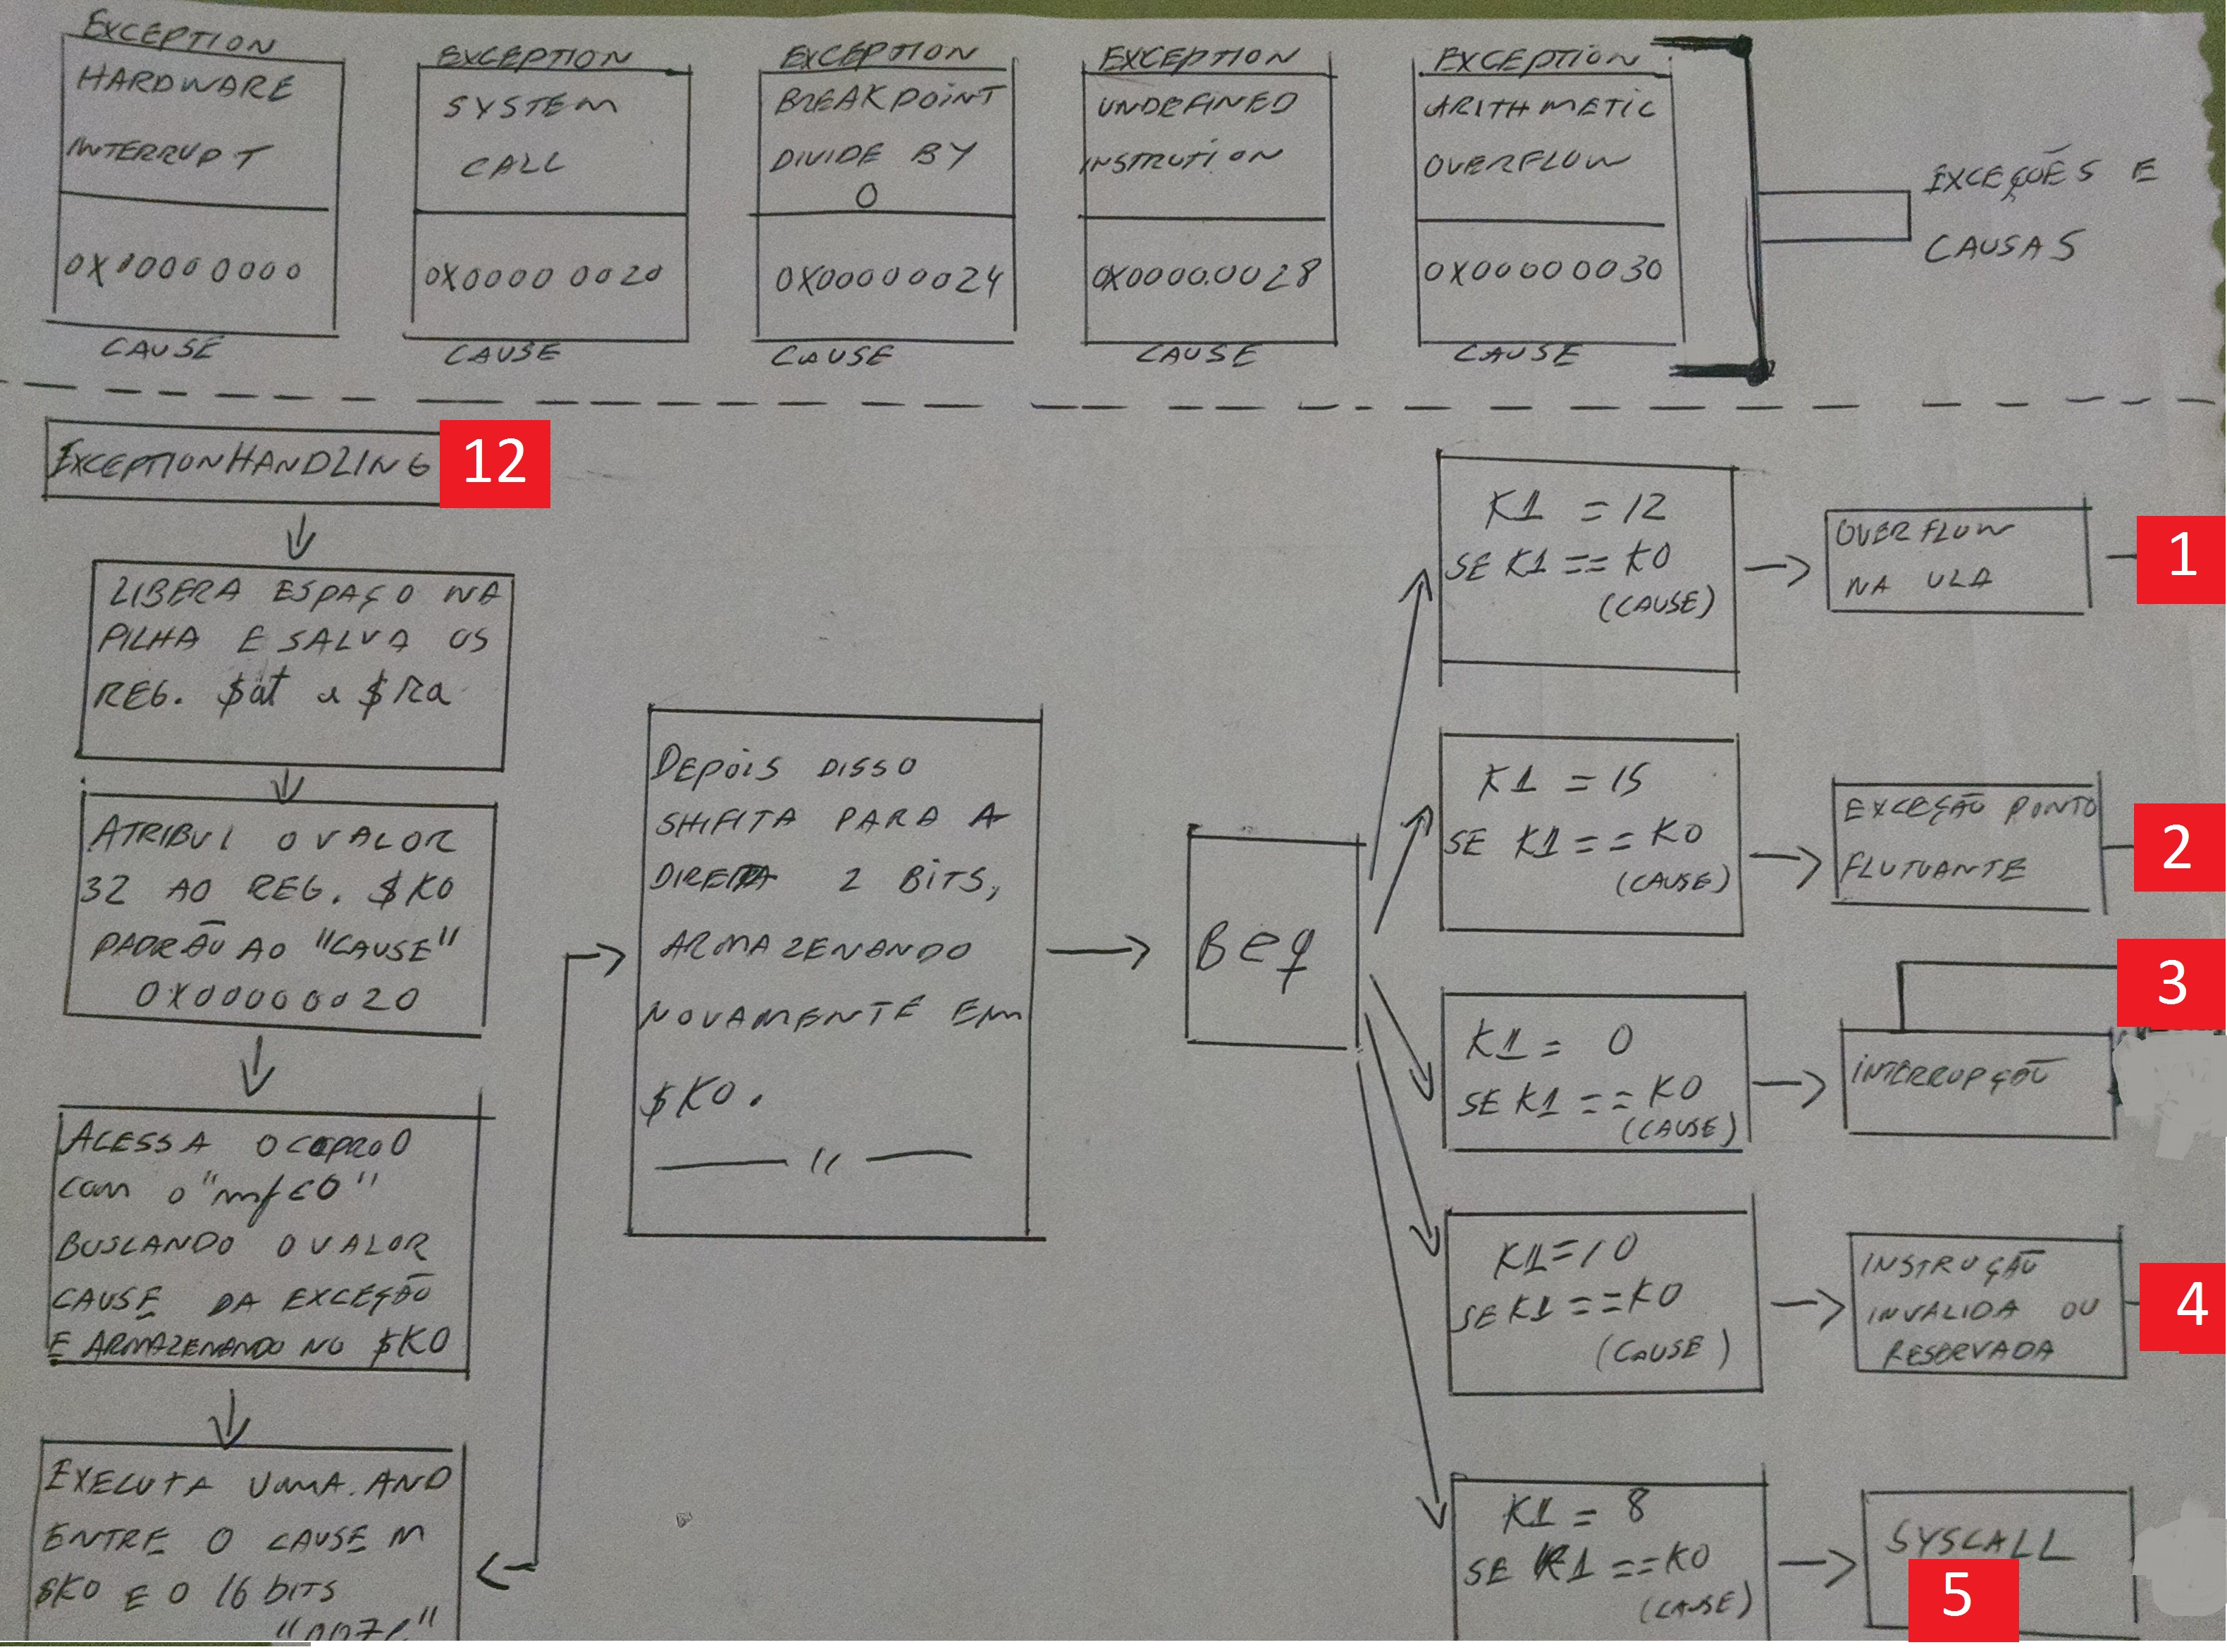 EXCEPTION
HARDWARE
INTERRUPT
0X00000000
CAUSE
EXCEPTION
SYSTEM
CALL
0X0000 0020
CAUSE
EXCEPTION
BREAKPOINT
DIVIDE BY
0
0X00000024
CAUSE
EXCEPTION
UNDEFINED
INSTRUTION
0X0000.0028
CAUSE
EXCEPTION
ARITHMETIC
OVERFLOW
0X00000030
CAUSE
EXCEÇÕES E
CAUSAS
EXCEPTIONHANDLING 12
LIBERA ESPAÇO NA
PILHA E SALVA OS
REG. $at a $Ra
ATRIBUI O VALOR
32 AO REG. $K0
PADRÃO AO "CAUSE"
0X00000020
ACESSA O COPRO0
COM O "mfC0"
BUSCANDO O VALOR
CAUSE DA EXCEÇÃO
E ARMAZENANDO NO $K0
EXECUTA UMA.AND
ENTRE O CAUSE M
$K0 E O 16 bITS
"007C"
DEPOIS DISSO
SHIFITA PARA A
DIREITA 2 BITS,
ARMAZENANDO
NOVAMENTE EM
$K0.
Beq
K1 = 12
SE K1 == K0
(CAUSE)
OVERFLOW
NA ULA
1
K1 = 15
SE K1 == K0
(CAUSE)
EXCEÇÃO PONTO
FLUTUANTE
2
K1 = 0
SE K1 == K0
(CAUSE)
INTERRUPÇÃO
3
K1=10
SE K1 ==K0
(CAUSE)
INSTRUÇÃO
INVALIDA OU
RESERVADA
4
K1 = 8
SE K1 ==K0
(CAUSE)
SYSCALL
5